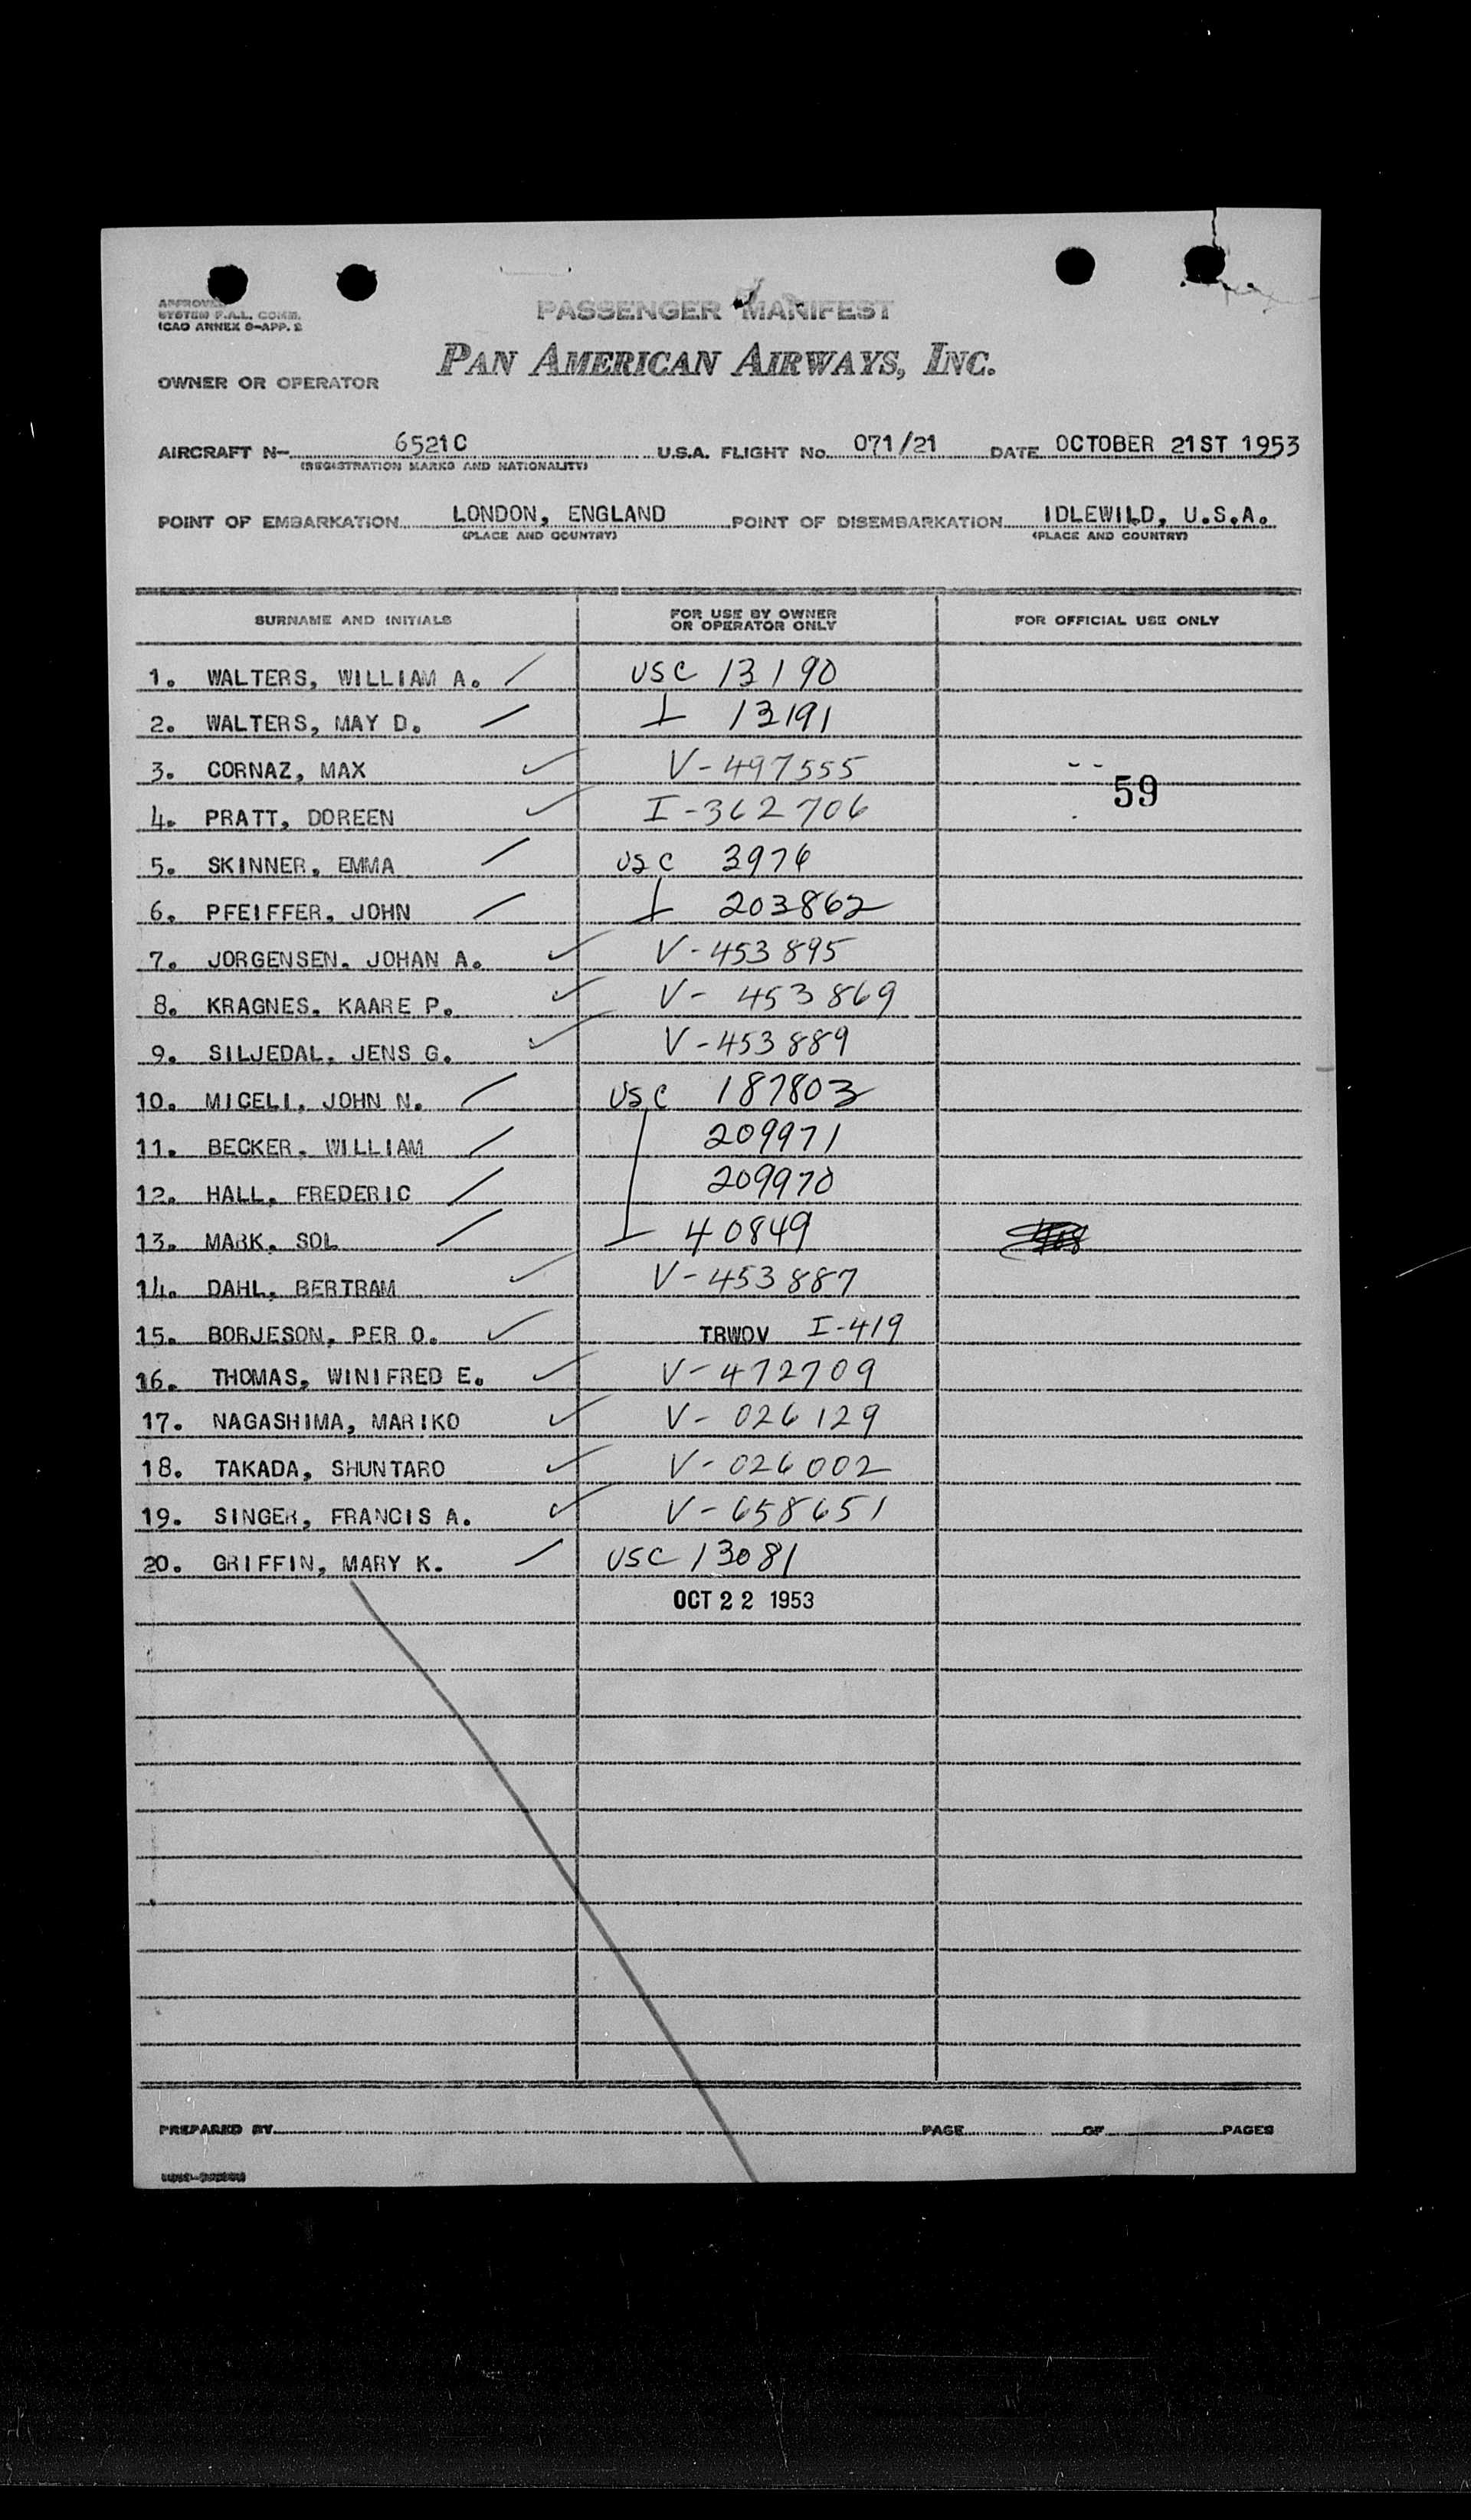 APPROVED
SYSTEM F.A.L. COMM.
ICAO ANNEX 9-APP. 2
PASSENGER MANIFEST
OWNER OR OPERATOR PAN AMERICAN AIRWAYS, INC.
AIRCRAFT N- 6521C U.S.A. FLIGHT No. 071/21 DATE OCTOBER 21ST 1953
(REGISTRATION MARKS AND NATIONALITY)
POINT OF EMBARKATION LONDON, ENGLAND POINT OF DISEMBARKATION IDLEWILD, U.S.A.
(PLACE AND COUNTRY) (PLACE AND COUNTRY)
SURNAME AND INITIALS FOR USE BY OWNER OR OPERATOR ONLY FOR OFFICIAL USE ONLY
1. WALTERS, WILLIAM A. USC 13190
2. WALTERS, MAY D. 13191
3. CORNAZ, MAX V-497555
59
4. PRATT, DOREEN I-362706
5. SKINNER, EMMA USC 3976
6. PFEIFFER, JOHN 203862
7. JORGENSEN, JOHAN A. V-453895
8. KRAGNES, KAARE P. V-453869
9. SILJEDAL, JENS G. V-453889
10. MICELI, JOHN N. USC 187803
11. BECKER, WILLIAM 209971
12. HALL, FREDERIC 209970
13. MARK, SOL 40849
14. DAHL, BERTRAM V-453887
15. BORJESON, PER O. TRWOV I-419
16. THOMAS, WINIFRED E. V-472709
17. NAGASHIMA, MARIKO V-026129
18. TAKADA, SHUNTARO V-026002
19. SINGER, FRANCIS A. V-658651
20. GRIFFIN, MARY K. USC 13081
OCT 22 1953
PREPARED BY PAGE OF PAGES